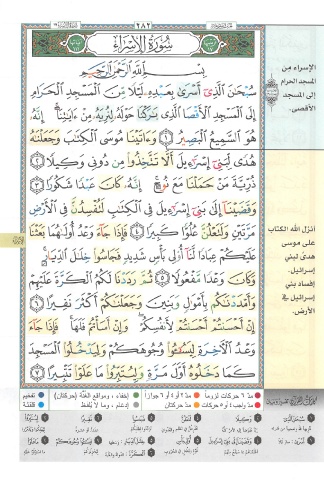 ٢٨٢
سُورَةُ الإِسْرَاءِ
بِسْمِ اللَّهِ الرَّحْمَٰنِ الرَّحِيمِ
سُبْحَٰنَ الَّذِي أَسْرَىٰ بِعَبْدِهِ لَيْلًا مِّنَ الْمَسْجِدِ الْحَرَامِ
إِلَى الْمَسْجِدِ الْأَقْصَا الَّذِي بَٰرَكْنَا حَوْلَهُ لِنُرِيَهُ مِنْ ءَايَٰتِنَا إِنَّهُ
هُوَ السَّمِيعُ الْبَصِيرُ ١ وَءَاتَيْنَا مُوسَى الْكِتَٰبَ وَجَعَلْنَٰهُ
هُدًى لِّبَنِي إِسْرَٰءِيلَ أَلَّا تَتَّخِذُوا مِن دُونِي وَكِيلًا ٢
ذُرِّيَّةَ مَنْ حَمَلْنَا مَعَ نُوحٍ إِنَّهُ كَانَ عَبْدًا شَكُورًا ٣
وَقَضَيْنَا إِلَىٰ بَنِي إِسْرَٰءِيلَ فِي الْكِتَٰبِ لَتُفْسِدُنَّ فِي الْأَرْضِ
مَرَّتَيْنِ وَلَتَعْلُنَّ عُلُوًّا كَبِيرًا ٤ فَإِذَا جَاءَ وَعْدُ أُولَىٰهُمَا بَعَثْنَا
عَلَيْكُمْ عِبَادًا لَّنَا أُولِي بَأْسٍ شَدِيدٍ فَجَاسُوا خِلَٰلَ الدِّيَارِ
وَكَانَ وَعْدًا مَّفْعُولًا ٥ ثُمَّ رَدَدْنَا لَكُمُ الْكَرَّةَ عَلَيْهِمْ
وَأَمْدَدْنَٰكُم بِأَمْوَٰلٍ وَبَنِينَ وَجَعَلْنَٰكُمْ أَكْثَرَ نَفِيرًا ٦
إِنْ أَحْسَنتُمْ أَحْسَنتُمْ لِأَنفُسِكُمْ وَإِنْ أَسَأْتُمْ فَلَهَا فَإِذَا جَاءَ
وَعْدُ الْءَاخِرَةِ لِيَسُـُٔوا وُجُوهَكُمْ وَلِيَدْخُلُوا الْمَسْجِدَ
كَمَا دَخَلُوهُ أَوَّلَ مَرَّةٍ وَلِيُتَبِّرُوا مَا عَلَوْا تَتْبِيرًا ٧
الإسراء من
المسجد الحرام
إلى المسجد
الأقصى.
أنزل الله الكتاب
على موسى
هدى لبني
إسرائيل.
إفساد بني
إسرائيل في
الأرض.
مدّ ٦ حركات لزوماً
مدّ ٢ أو ٤ أو ٦ جوازاً
إخفاء، ومواقع الغُنَّة (حركتان)
تفخيم
مدّ واجب ٤ أو ٥ حركات
مدّ حركتان
إدغام، وما لا يُلفظ
قلقلة